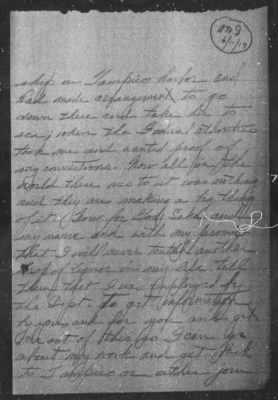 ship in Tampico harbor and
had made arrangement to go
down there and take her to
sea; when the Federal athorites
took me and wanted proof of
my conections. Now all in the
world there was to it was nothing
and they are making a big thing
of it. Now for God's Sake and
my name and with my promise
that I will never touch another
drop of liquor in my life tell
them that I was employed by
the Dept. to get information
by you and for you and get
me out of this so I can go
about my work and get back
to Tampico or other